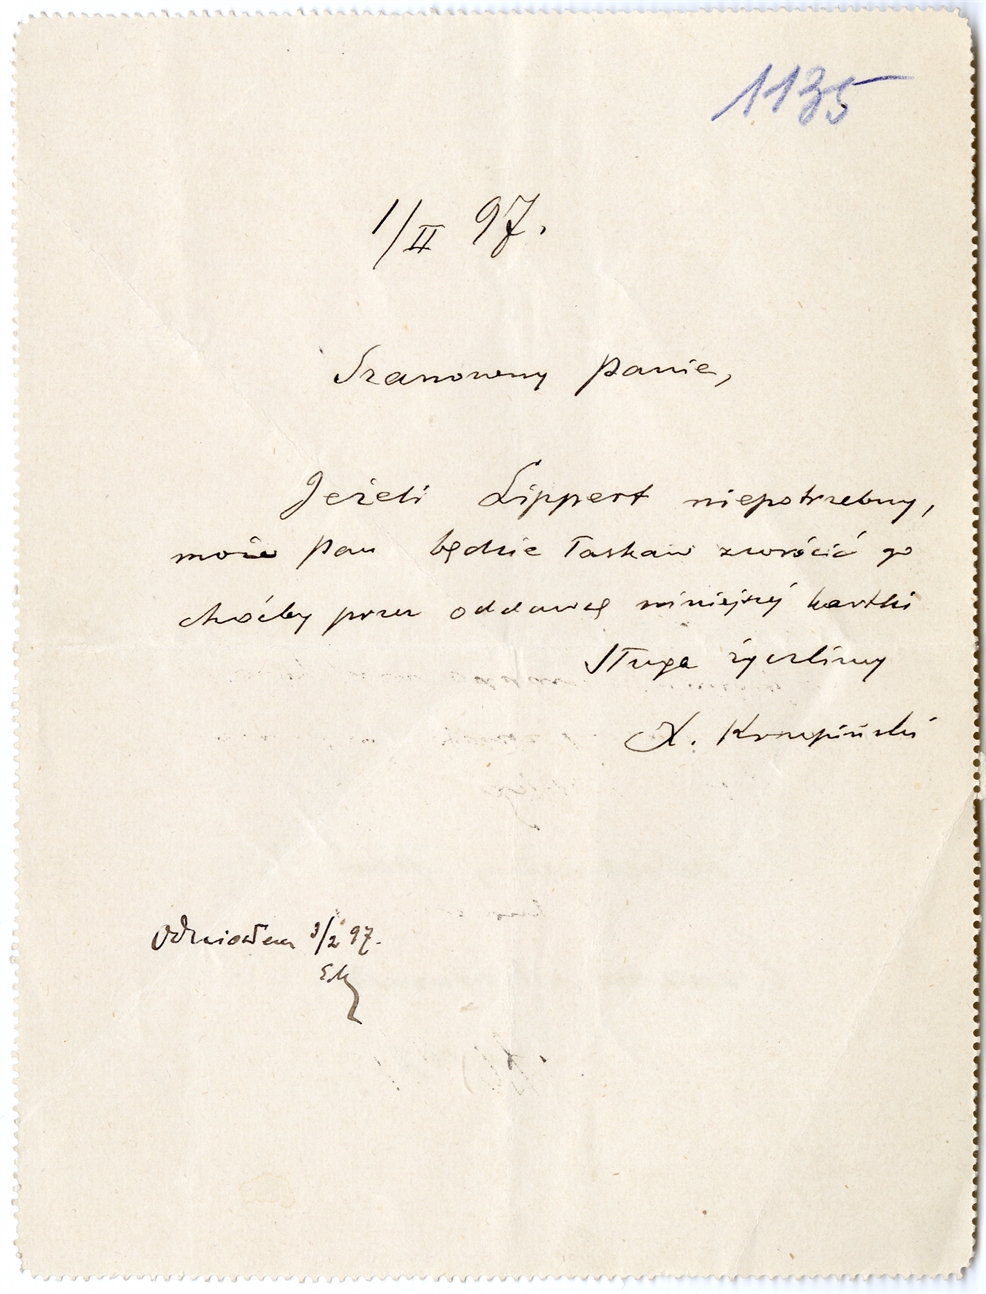 1135
1/II 97.
Szanowny Panie,
Jeżeli Lippert niepotrzebny,
może Pan będzie łaskaw zwrócić go
choćby przez oddawcę niniejszéj kartki
Sługa życzliwy
Odniosłem 3/2 97.